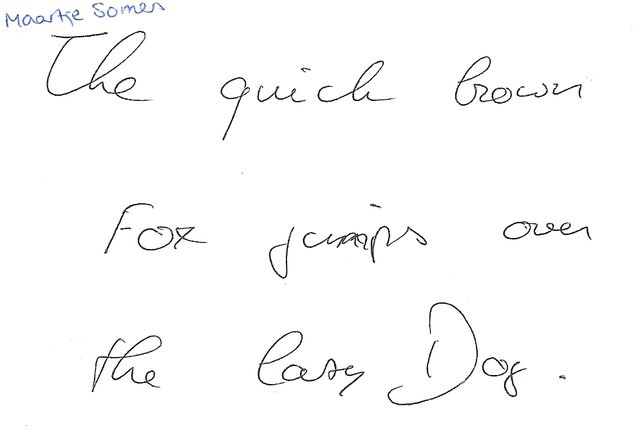 Maartje Somers
The quick brown
Fox jumps over
the lazy Dog.